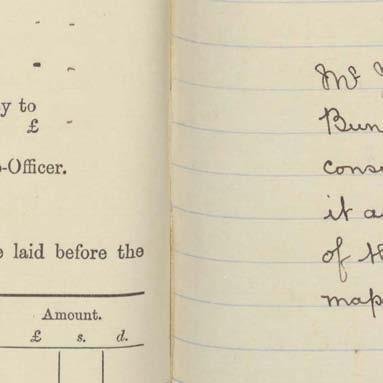 y to
£ -
-Officer.
laid before the
Amount.
£ s. d.
Mr
Bun
cons
it a
of th
map